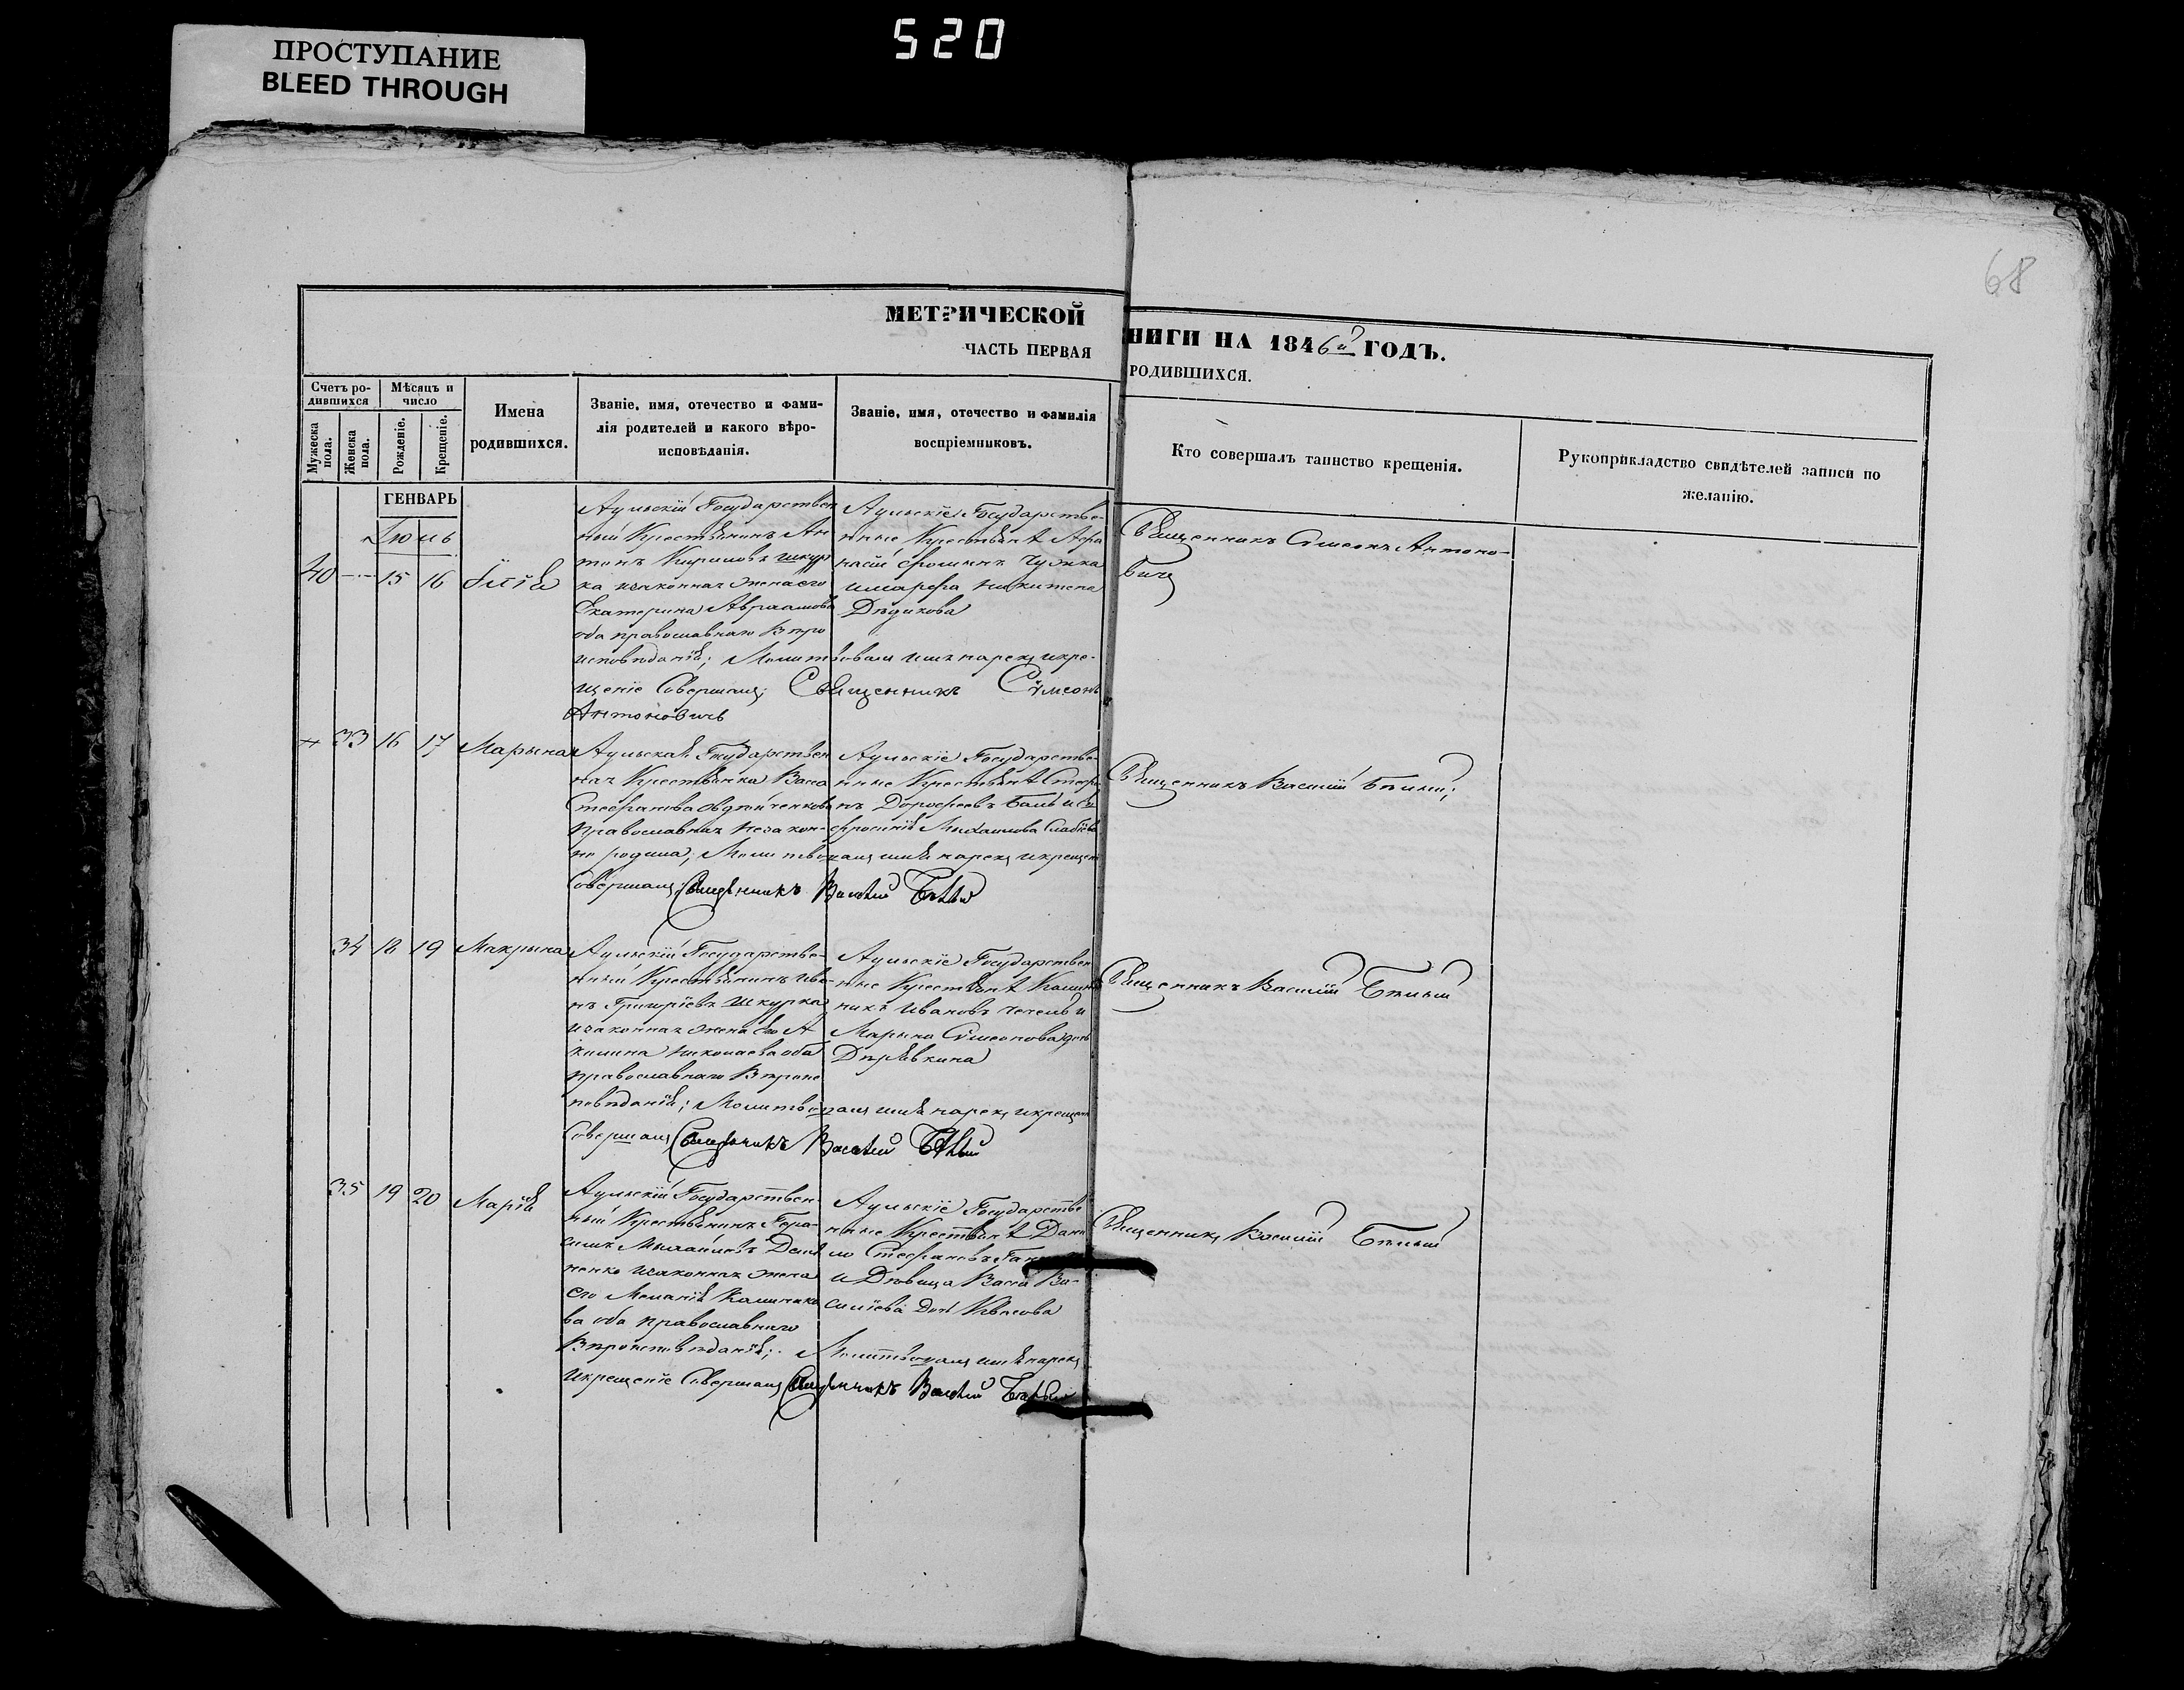 520
ПРОСТУПАНИЕ
BLEED THROUGH
68
МЕТРИЧЕСКОЙ
НИГИ НА 1846й ГОДЪ.
ЧАСТЬ ПЕРВАЯ
РОДИВШИХСЯ.
Счетъ ро-
дившихся
Мужеска пола.
Женска пола.
Мѣсяцъ и
число
Рожденіе.
Крещеніе.
Имена
родившихся.
Званіе, имя, отечество и фами-
лія родителей и какого вѣро-
исповѣданія.
Званіе, имя, отечество и фамилія
воспріемниковъ.
Кто совершалъ таинство крещенія.
Рукоприкладство свидѣтелей записи по
желанію.
ГЕНВАРЬ
Іюнь
40 15 16
Аульскій Государствен
ный Крестьянинъ Ан
тонъ Кириловъ Шкур
ка изаконная жена его
Екатерина Авраамова
оба православнаго Вѣро
исповѣданія; Молитвовалъ имя нарекъ икре-
щеніе Совершалъ; Священникъ Сѵмеонъ
Антоновичъ
Аульскіе Государстве-
нные Крестьяне Афа
насій
имарфа Никитена
Дѣдикова
Священникъ Сѵмеонъ Антоно-
вичъ
33 16 17 Марына
Аульская Государствен
ная Крестьянка Васса
Стефанова
Православная незакон-
но родила; Молитвовалъ имя нарекъ икрещеніе
Совершалъ Священникъ Василій Бѣлый
Аульскіе Государстве-
нные Крестьяне Стефа
нъ Дорофеевъ
фросинія Михаилова
Священникъ Василій Бѣлый;
34 18 19 Макрына
Аульскій Государстве-
нный Крестьянинъ Ива-
нъ Григоріевъ Шкурка
изаконная жена его А
килина Николаева оба
православнаго Вѣроис
повѣданія; Молитвовалъ имя нарекъ икрещеніе
Совершалъ Священникъ Василій Бѣлый
Аульскіе Государствен
ные Крестьяне Калин
никъ Ивановъ и
Марына Сѵмеонова дочь
Дѣрявкина
Священникъ Василій Бѣлый
35 19 20 Марія
Аульскій Государствен-
ный Крестьянинъ Гера-
симъ Михайловъ
ненко изаконная жена
его Меланія Калинико
ва оба православнаго
Вѣроисповѣданія; Молитвовалъ имя нарекъ
Икрещеніе Совершалъ Священникъ Василій Бѣлый
Аульскіе Государстве
нные Крестьяне Дани
ло Стефановъ
и Дѣвица Васса Ва-
силіева Дочь Квасова
Священникъ Василій Бѣлый